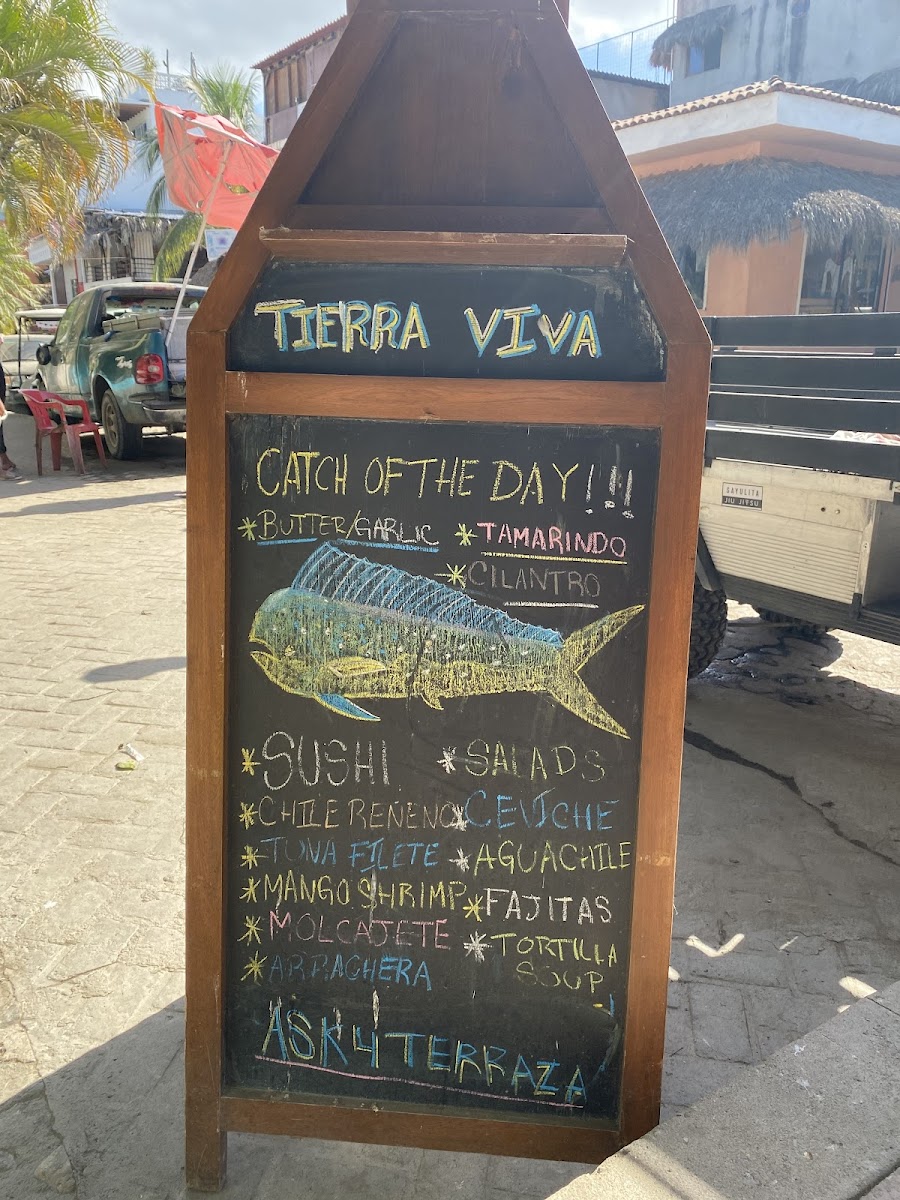 TIERRA VIVA
CATCH OF THE DAY!!!
*BUTTER/GARLIC *TAMARINDO
*CILANTRO
*SUSHI *SALADS
*CHILE RENENO *CEVICHE
*TUNA FILETE *AGUACHILE
*MANGO SHRIMP *FAJITAS
*MOLCAJETE *TORTILLA
SOUP
*ARRACHERA
ASK 4 TERRAZA
SAYULITA
JIU JITSU